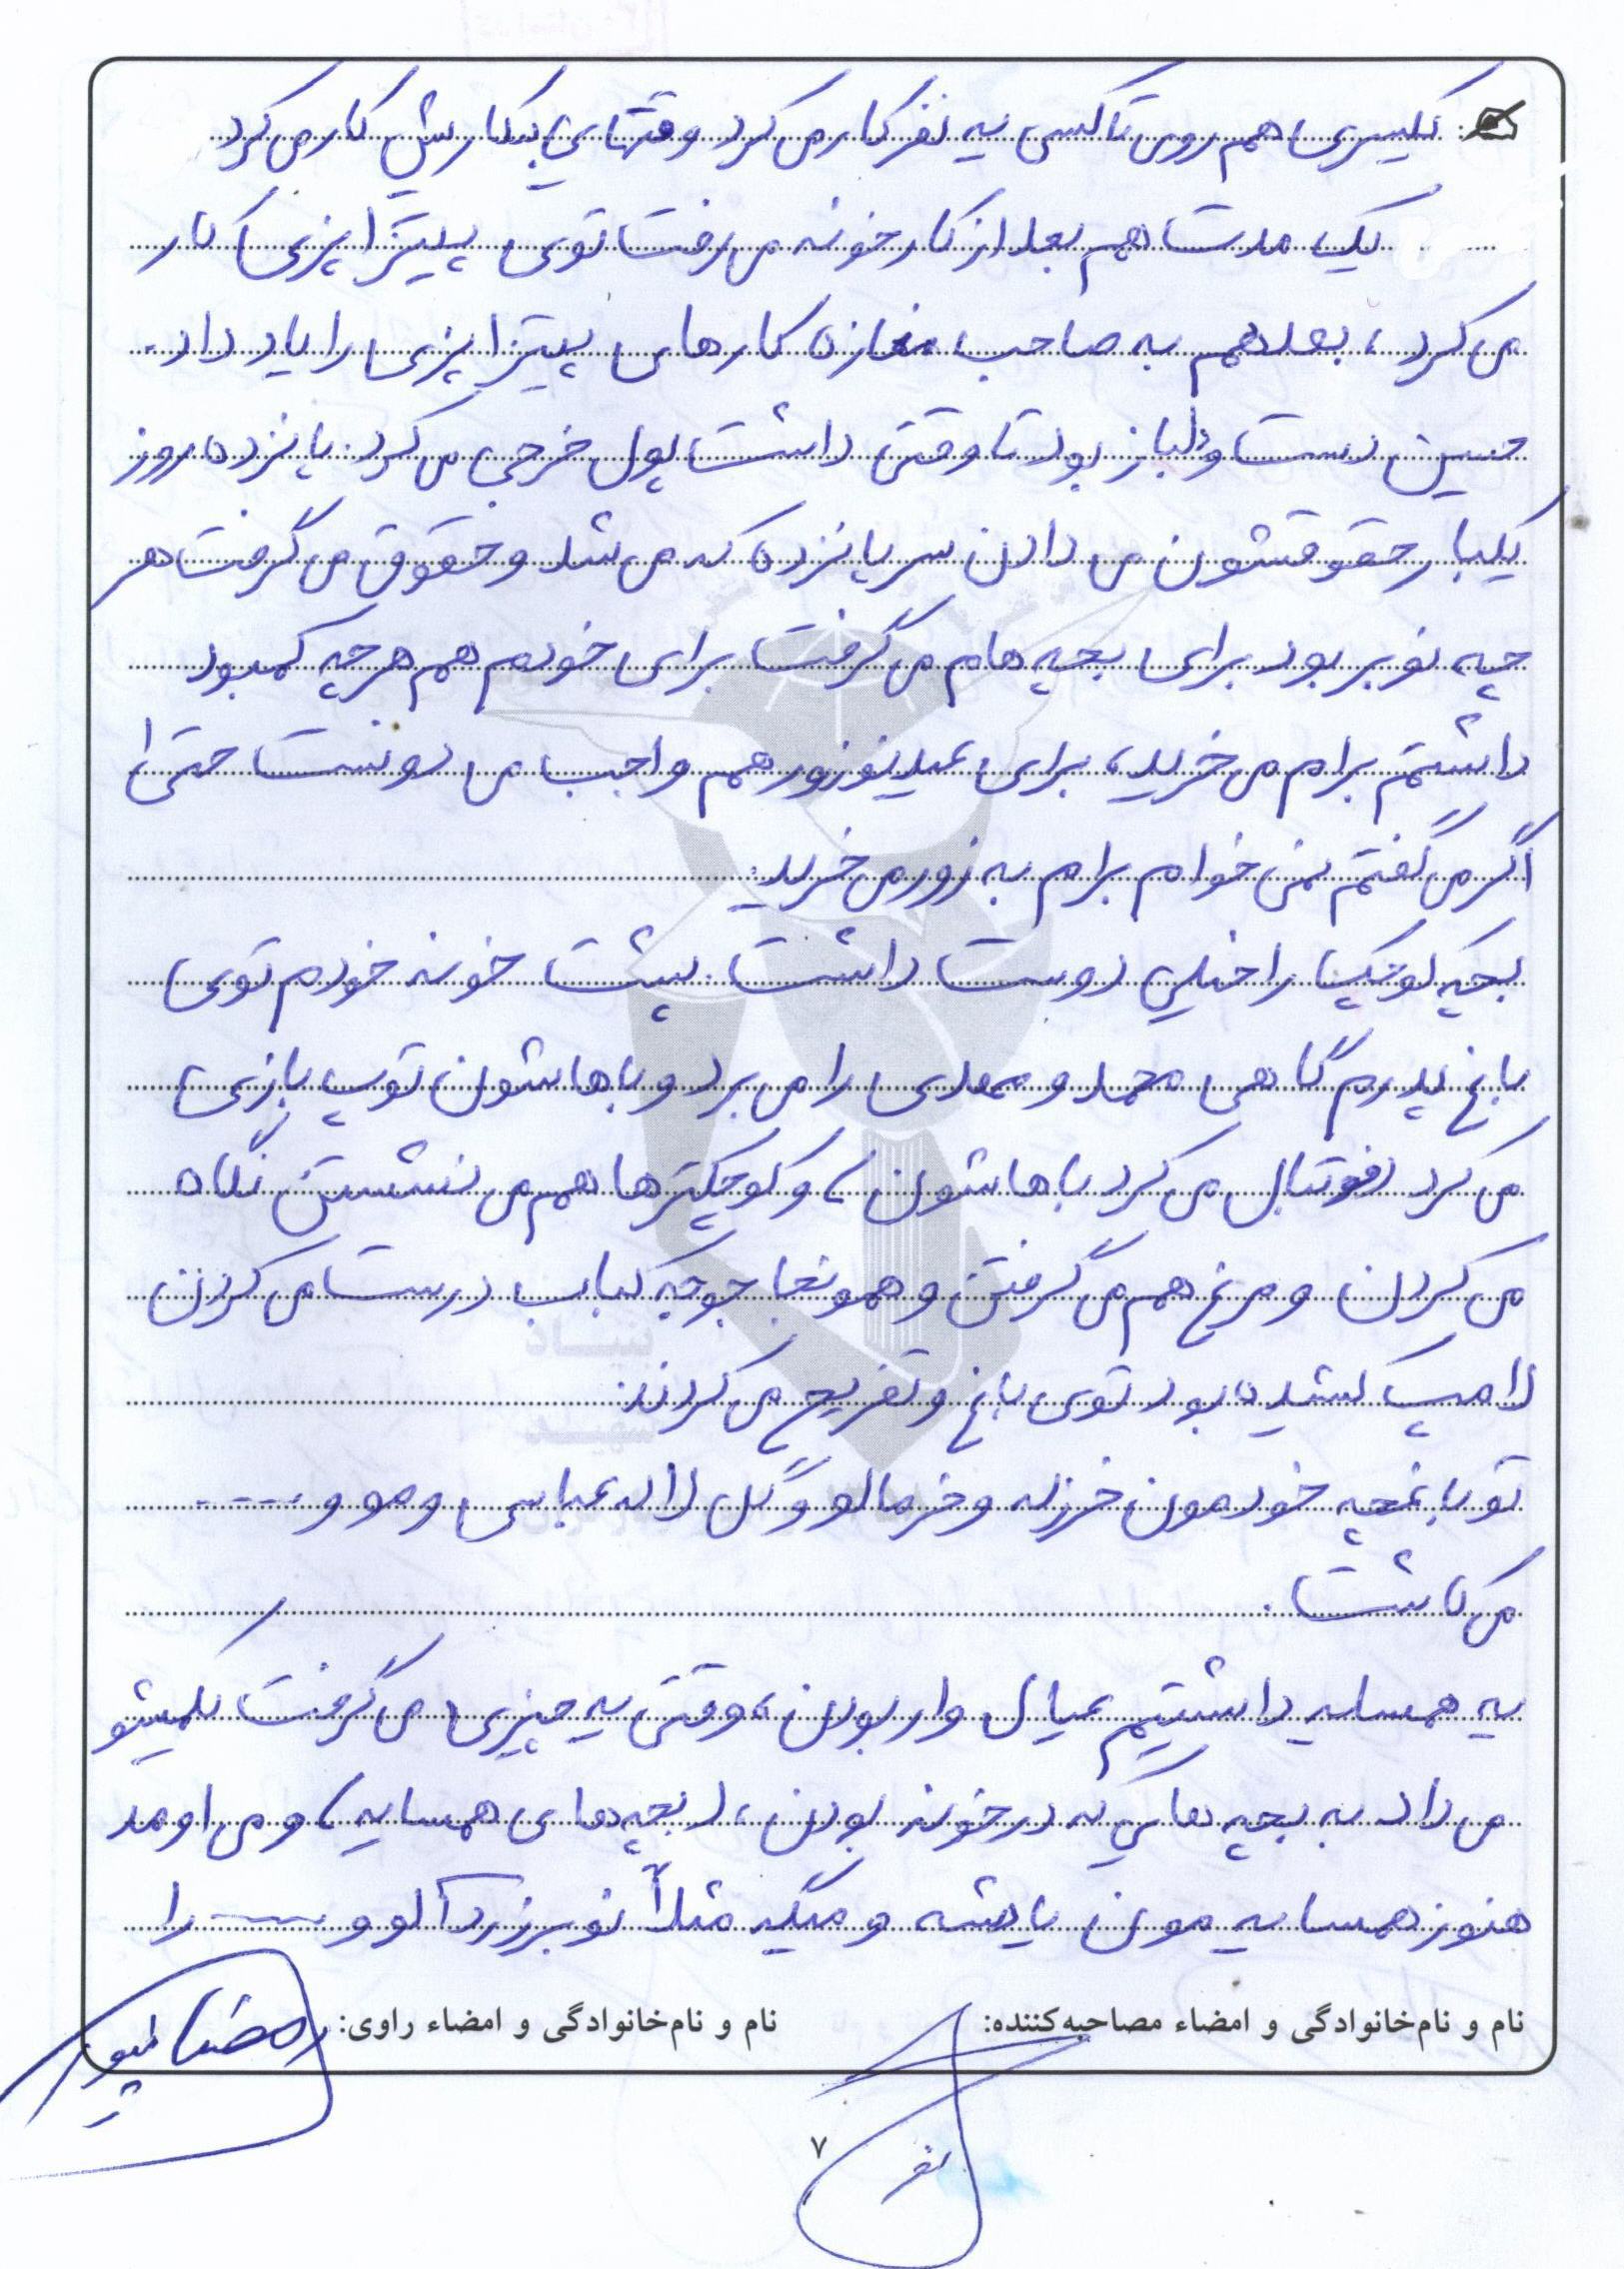 یکسری هم روی تاکسی یه نفر کار می کرد وقتهای بیکاریش کار می کرد
یک مدت هم بعد از کارخونه می رفت توی پیتزا پزی کار
می کرد، بعد هم به صاحب مغازه کارهای پیتزا پزی را یاد داد.
حسین دست و دلباز بود تا وقتی داشت پول خرجی می کرد. پانزده روز
یکبار حقوقشون می دادن سر پانزده که می شد و حقوق می گرفت هر
چه نوبر بود برای بچه هام می گرفت برای خودم هم هر چه کمبود
داشتم برام می خرید، برای عید نوروز هم واجب می دونست حتی ا
اگر می گفتم نمی خوام برام به زور می خرید.
بچه کوچیکا را خیلی دوست داشت. پشت خونه خودم توی
باغ پدرم گاهی محمد و مهدی را می برد و باهاشون توپ بازی
می کرد (فوتبال می کرد باهاشون) و کوچکترها هم می نشستن نگاه
می کردن و مرغ هم می گرفتن و همونجا جوجه کباب درست می کردن
لامپ کشیده بود توی باغ و تفریح می کردند.
تو باغچه خودمون خرزله و خرمالو و گل لاله عباسی و مو و ....
می کاشت.
یه همسایه داشتیم عیال وار بودن، وقتی یه چیزی می گرفت یکمیشو
می داد به بچه هایی که در خونه بودن، (بچه های همسایه) و می اومد
هنوز همسایه مون یادشه و میگه مثلاً نوبر زردآلو و .... را
نام و نام‌خانوادگی و امضاء مصاحبه‌کننده: نام و نام‌خانوادگی و امضاء راوی: رمضانپور
۷